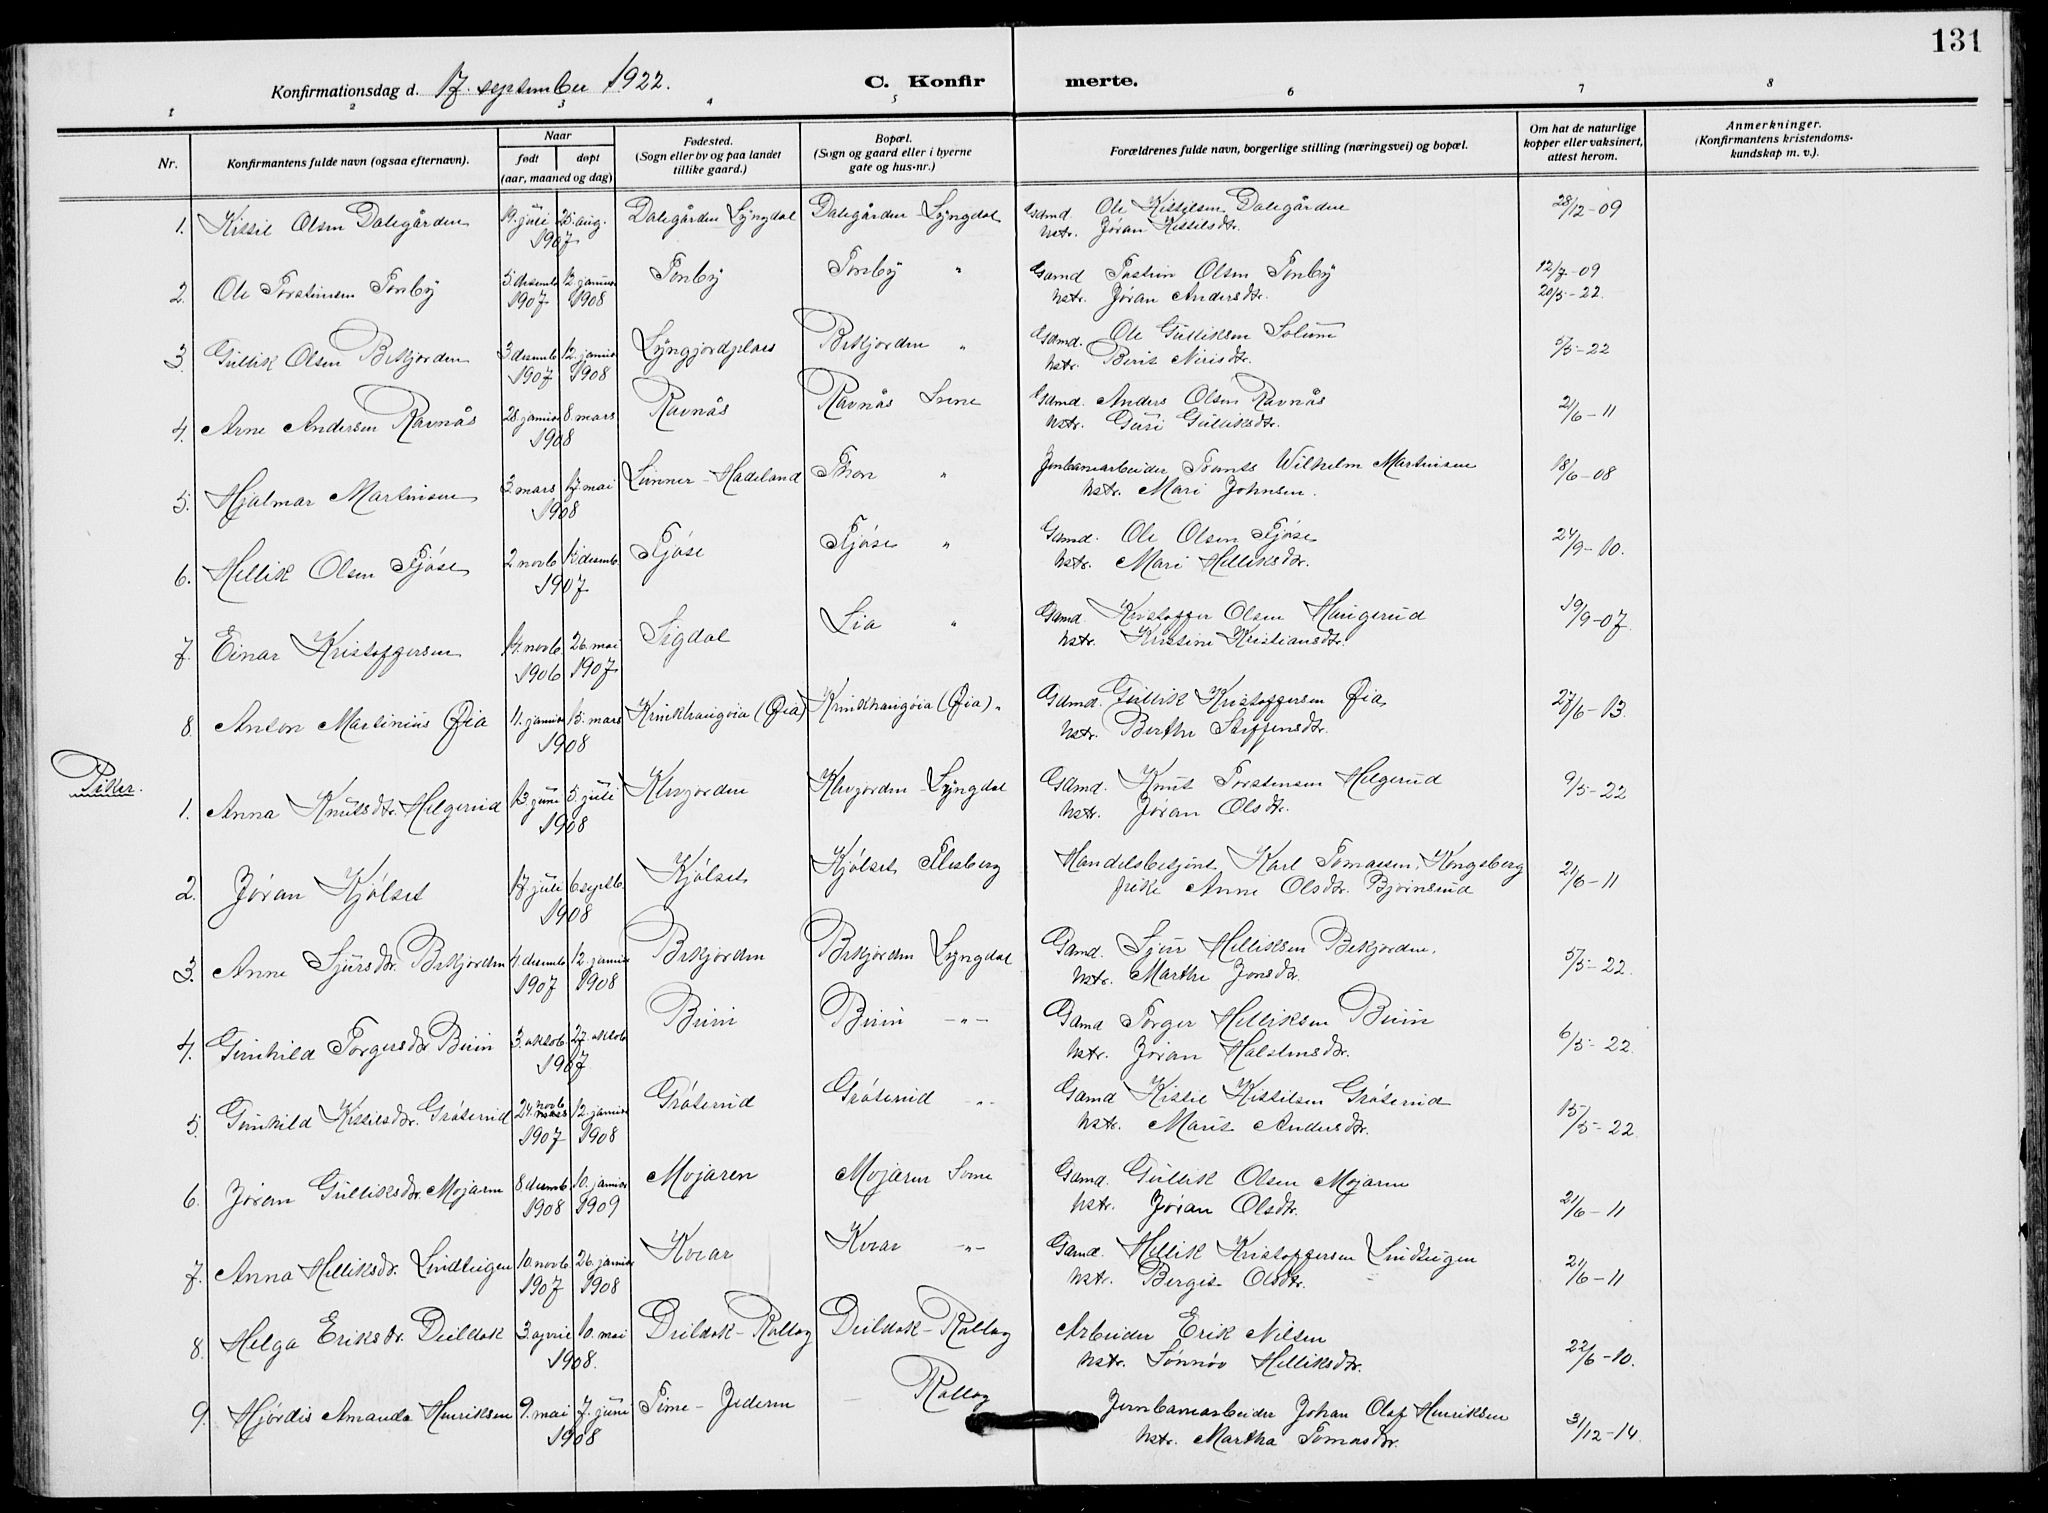 131
Konfirmationsdag d. 17. september 1922. C. Konfir merte.
1 2 3 4 5 6 7 8
Nr. Konfirmantens fulde navn (ogsaa efternavn). Naar født døpt (aar, maaned og dag) Fødested. (Sogn eller by og paa landet tillike gaard.) Bopæl. (Sogn og gaard eller i byerne gate og hus-nr.) Forældrenes fulde navn, borgerlige stilling (næringsvei) og bopæl. Om hat de naturlige kopper eller vaksinert, attest herom. Anmerkninger. (Konfirmantens kristendoms-kundskap m. v.).
1. Kittil Olsen Dalegården 19. juli 25. aug. 1907 Dalegården Lyngdal Dalegården Lyngdal Gdmd. Ole Kittilsen Dalegården 28/12-09
hstr. Jøran Kittilsdtr.
2. Ole Torstensen Fonby 5 desemb. 1907 12. januar 1908 Fonby Fonby " Gamd Tostein Olsen Fonby 12/7-09
hstr. Jøran Andersdtr. 20/5-22.
3. Gullik Olsen Bekjorden 3 desemb. 1907 12. januar 1908 Lyngjordplads Bekjorden " Gdmd. Ole Gulliksen Solum 5/5-22
hstr. Berit Nirisdtr.
4. Arne Andersen Ravnås 28 januar 8. mars 1908 Ravnås Ravnås Svene Gdmd. Anders Olsen Ravnås 21/6-11
hstr. Guri Gulliksdtr.
5. Hjalmar Martinsen 3 mars 17. mai 1908 Lunner-Hadeland Thon " Jernbanearbeider Frants Wilhelm Martinsen 18/6-08
hstr. Mari Johnsen.
6. Hellik Olsen Fjøse 2 novb. desemb. 1907 Fjøse Fjøse " Gamd. Ole Olsen Fjøse 24/9-10.
hstr. Mari Helliksdtr.
7. Einar Kristoffersen 14. novb. 1906 26. mai 1907 Sigdal Lia " Gamd Kristoffer Olsen Haugerud 19/9-07.
hstr. Kristine Kristiansdtr.
8 Anton Martinius Øia 11. januar 15. mars 1908 Krinkhaugøia (Øia) Krinkhaugøia (Øia) " Gdmd. Gullik Kristoffersen Øia 27/6-13.
hstr. Berthe Steffensdtr.
Piker.
1. Anna Knutsdtr. Helgerud 13. juni 5. juli 1908 Klevjorden Klevjorden Lyngdal Gdmd. Knut Torstensen Helgerud 9/5-22
hstr. Jøran Olsdtr.
2. Jøran Kjølset 17. juli 6 septb. 1908 Kjølset Kjølset Flesberg Handelsbetjent Karl Tomassen, Kongsberg 21/6-11
pike Anne Olsdtr. Bjørnsrud
3. Anne Sjursdtr. Bekjorden 4. desemb. 1907 12. januar 1908 Bekjorden Bekjorden Lyngdal Gamd. Sjur Helliksen Bekjorden. 5/5-22.
hstr. Marthe Jonsdtr.
4. Gunhild Torgersdtr. Buin 3. oktob. 27. oktob. 1907 Buin Buin -"- Gamd Torger Helliksen Buin 6/5-22.
hstr. Jøran Halstensdtr.
5. Gunhild Kittilsdtr. Grøterud 24. novb. 1907 12. januar 1908 Grøterud Grøterud -"- Gamd Kittil Kittilsen Grøterud 15/5-22.
hstr. Marit Andersdtr.
6. Jøran Gulliksdtr. Mojaren 8 desemb. 1908 10. januar 1909 Mojaren Mojaren Svene Gamd. Gullik Olsen Mojaren 21/6-11
hstr. Jøran Olsdtr.
7. Anna Helliksdtr. Lindteigen 10. novb. 1907 26. januar 1908 Kvar Kvar -"- Gamd. Hellik Kristoffersen Lindteigen 21/6-11
hstr. Bergit Olsdtr.
8. Helga Eriksdtr. Deildok 3. april 10. mai 1908. Deildok-Rollag Deildok-Rollag Arbeider Erik Nilsen 22/6-10.
hstr. Sønnøv Helliksdtr.
9. Hjørdis Amanda Henriksen 9. mai 7. juni 1908 Time-Jederen Rollag Jernbanearbeider Johan Olaf Henriksen 31/12-14.
hstr. Martha Tomasdtr.